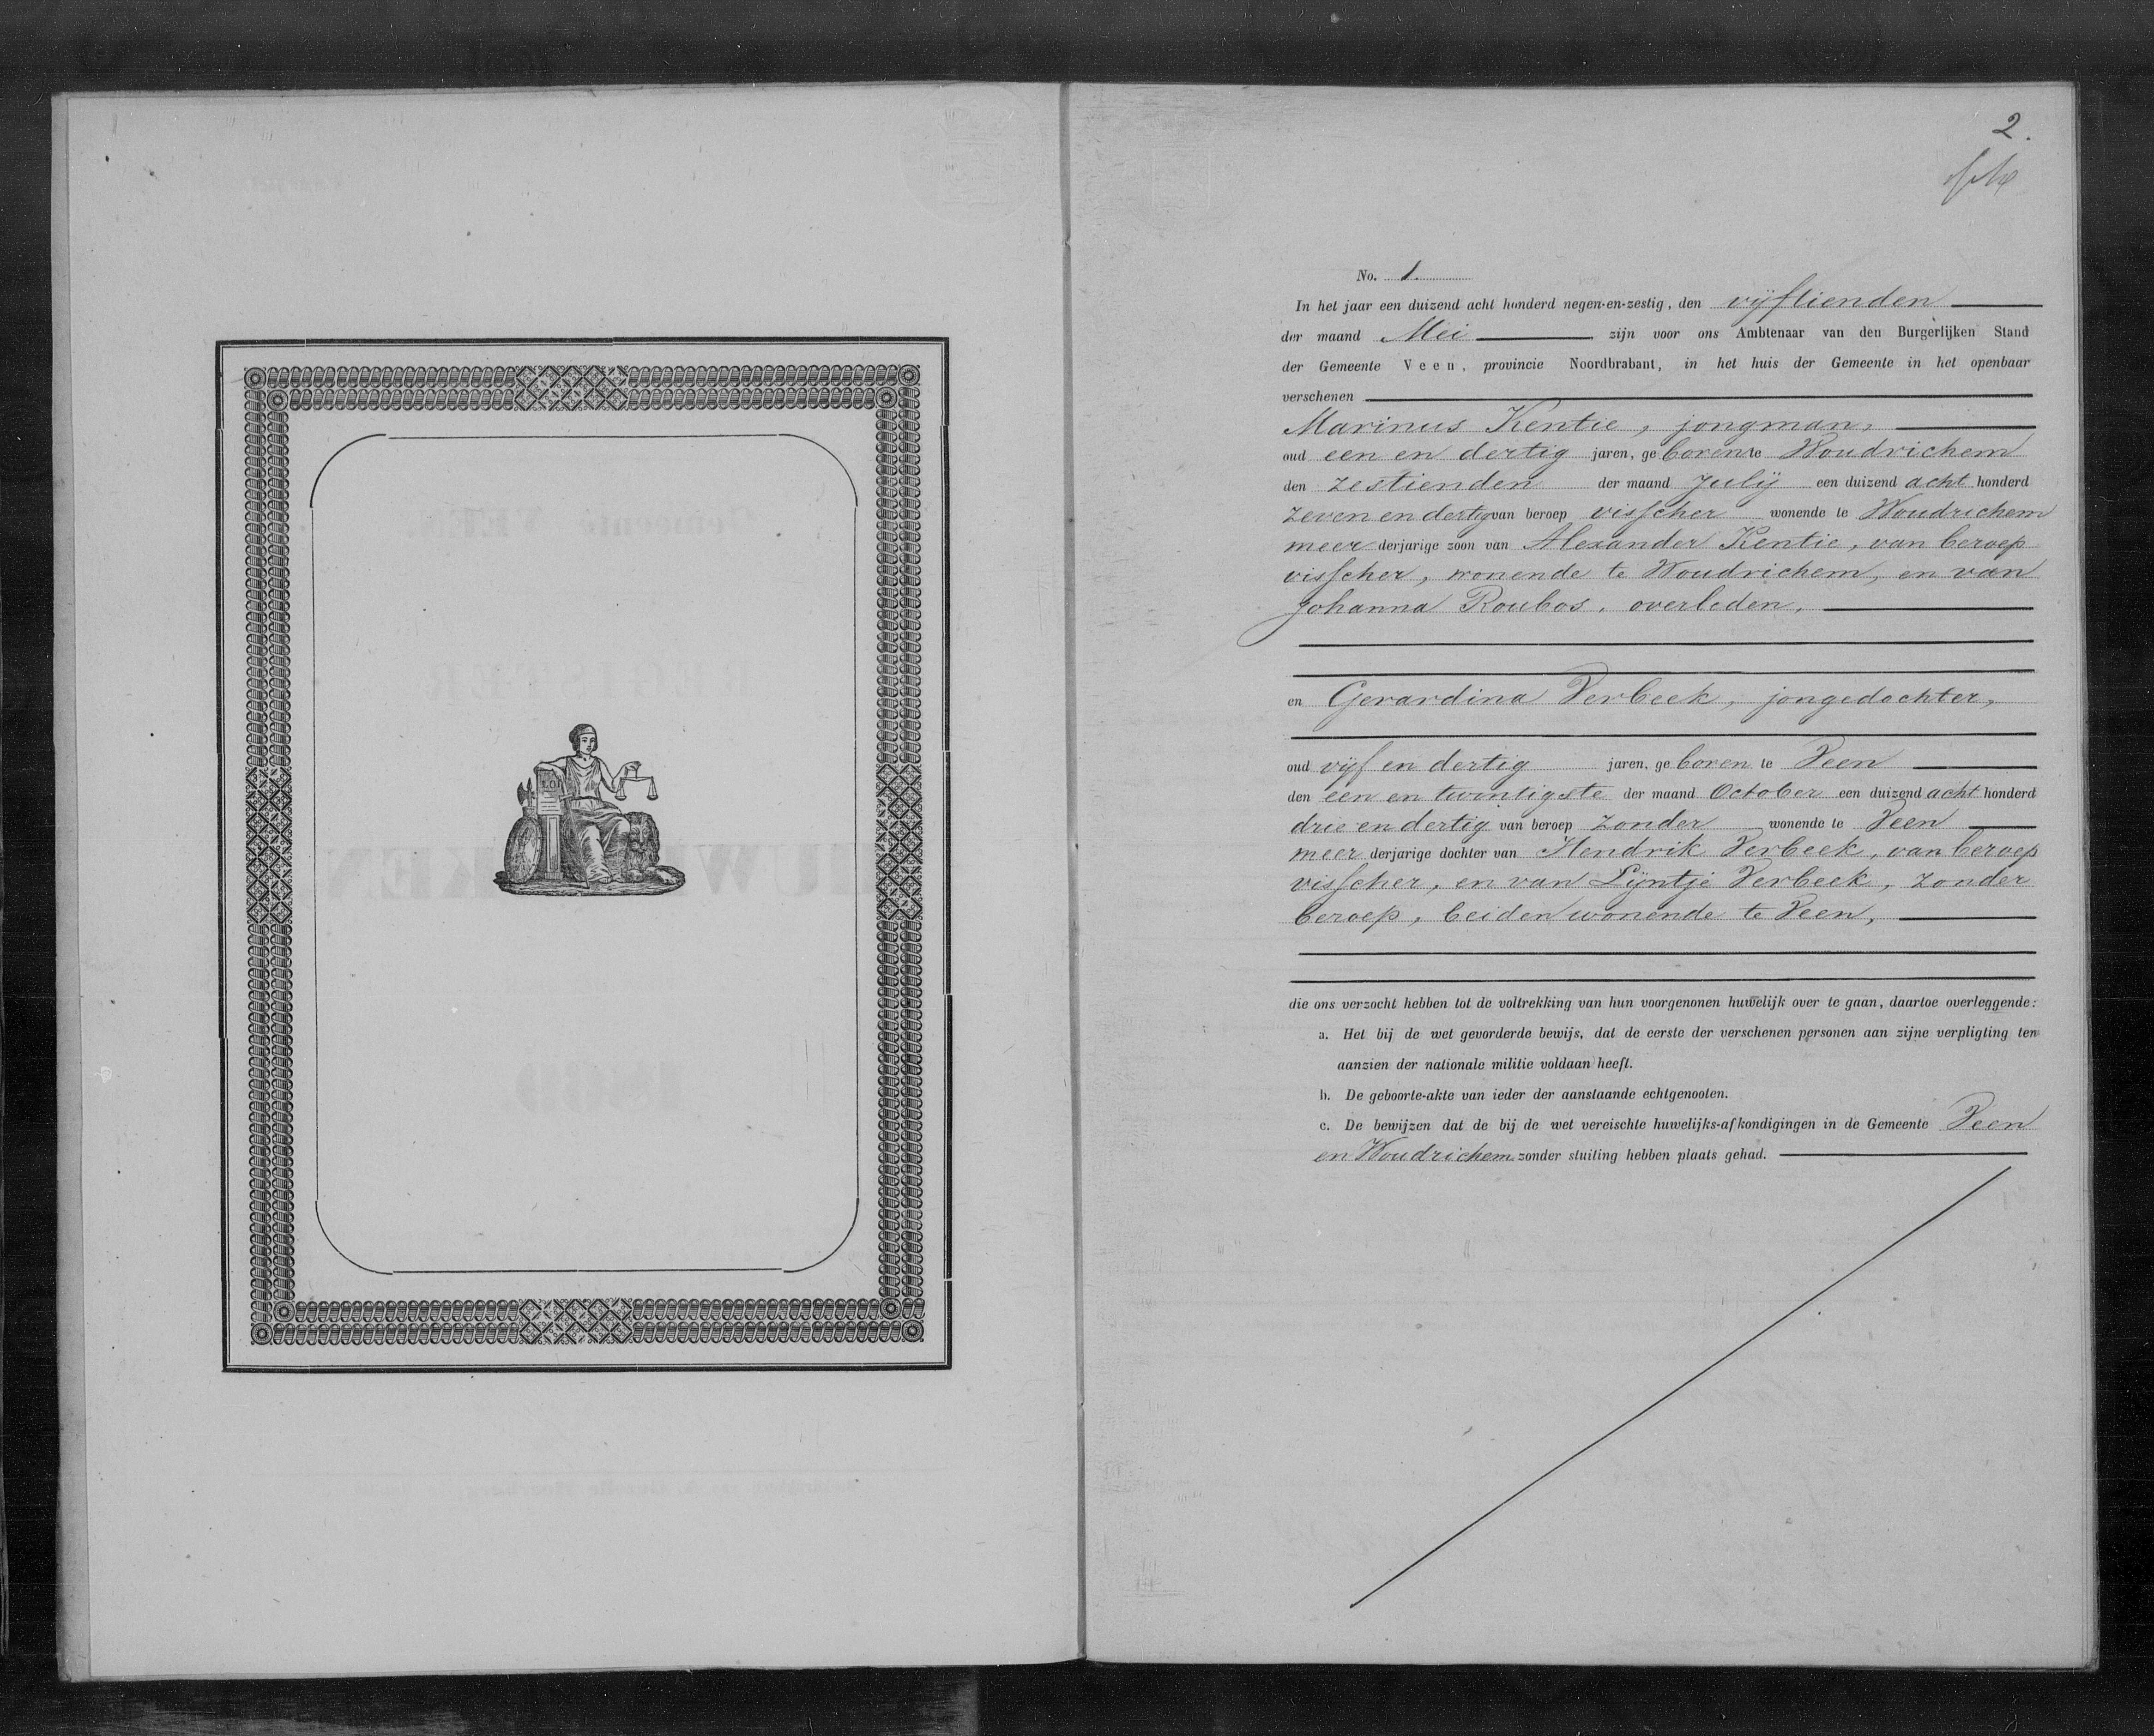 LOI
2.
No. 1.
In het jaar een duizend acht honderd negen-en-zestig, den vijftienden
der maand Mei zijn voor ons Ambtenaar van den Burgerlijken Stand
der Gemeente Veen, provincie Noordbrabant, in het huis der Gemeente in het openbaar
verschenen
Marinus Kentie, jongman,
oud een en dertig jaren, geboren te Woudrichem
den zestienden der maand Julij een duizend acht honderd
zeven en dertig van beroep visscher wonende te Woudrichem
meerderjarige zoon van Alexander Kentie, van beroep
visscher, wonende te Woudrichem, en van
Johanna Roubos, overleden,
en Gerardina Verbeek, jongedochter,
oud vijf en dertig jaren, geboren te Veen
den een en twintigste der maand October een duizend acht honderd
drie en dertig van beroep zonder wonende te Veen
meerderjarige dochter van Hendrik Verbeek, van beroep
visscher, en van Lijntje Verbeek, zonder
beroep, beiden wonende te Veen,
die ons verzocht hebben tot de voltrekking van hun voorgenonen huwelijk over te gaan, daartoe overleggende:
a. Het bij de wet gevorderde bewijs, dat de eerste der verschenen personen aan zijne verpligting ten
aanzien der nationale militie voldaan heeft.
b. De geboorte-akte van ieder der aanstaande echtgenooten.
c. De bewijzen dat de bij de wet vereischte huwelijks-afkondigingen in de Gemeente Veen
en Woudrichem zonder stuiting hebben plaats gehad.